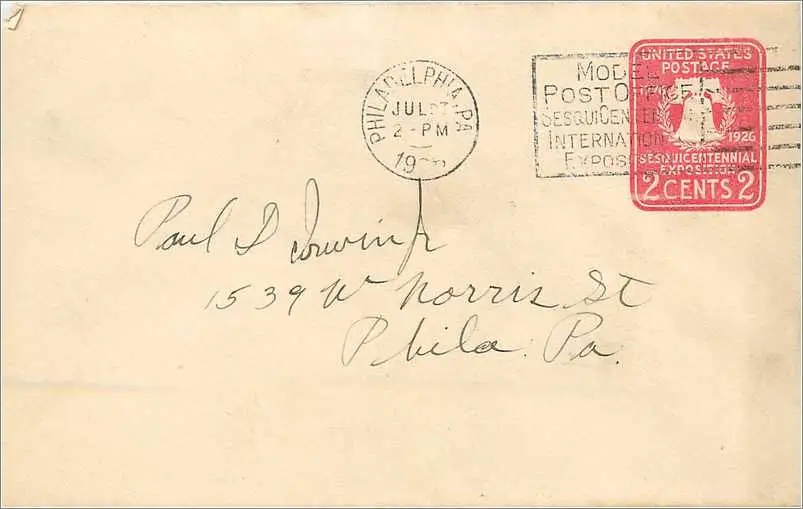 PHILADELPHIA, PA.
JUL 27
2 - PM
19
MODEL
POST OFFICE
SESQUICENTEN
INTERNATION
EXPOSI
UNITED STATES
POSTAGE
1926
SESQUICENTENNIAL
EXPOSITION
2 CENTS 2
Paul D Irwin Jr
1539 W Norris St
Phila. Pa.